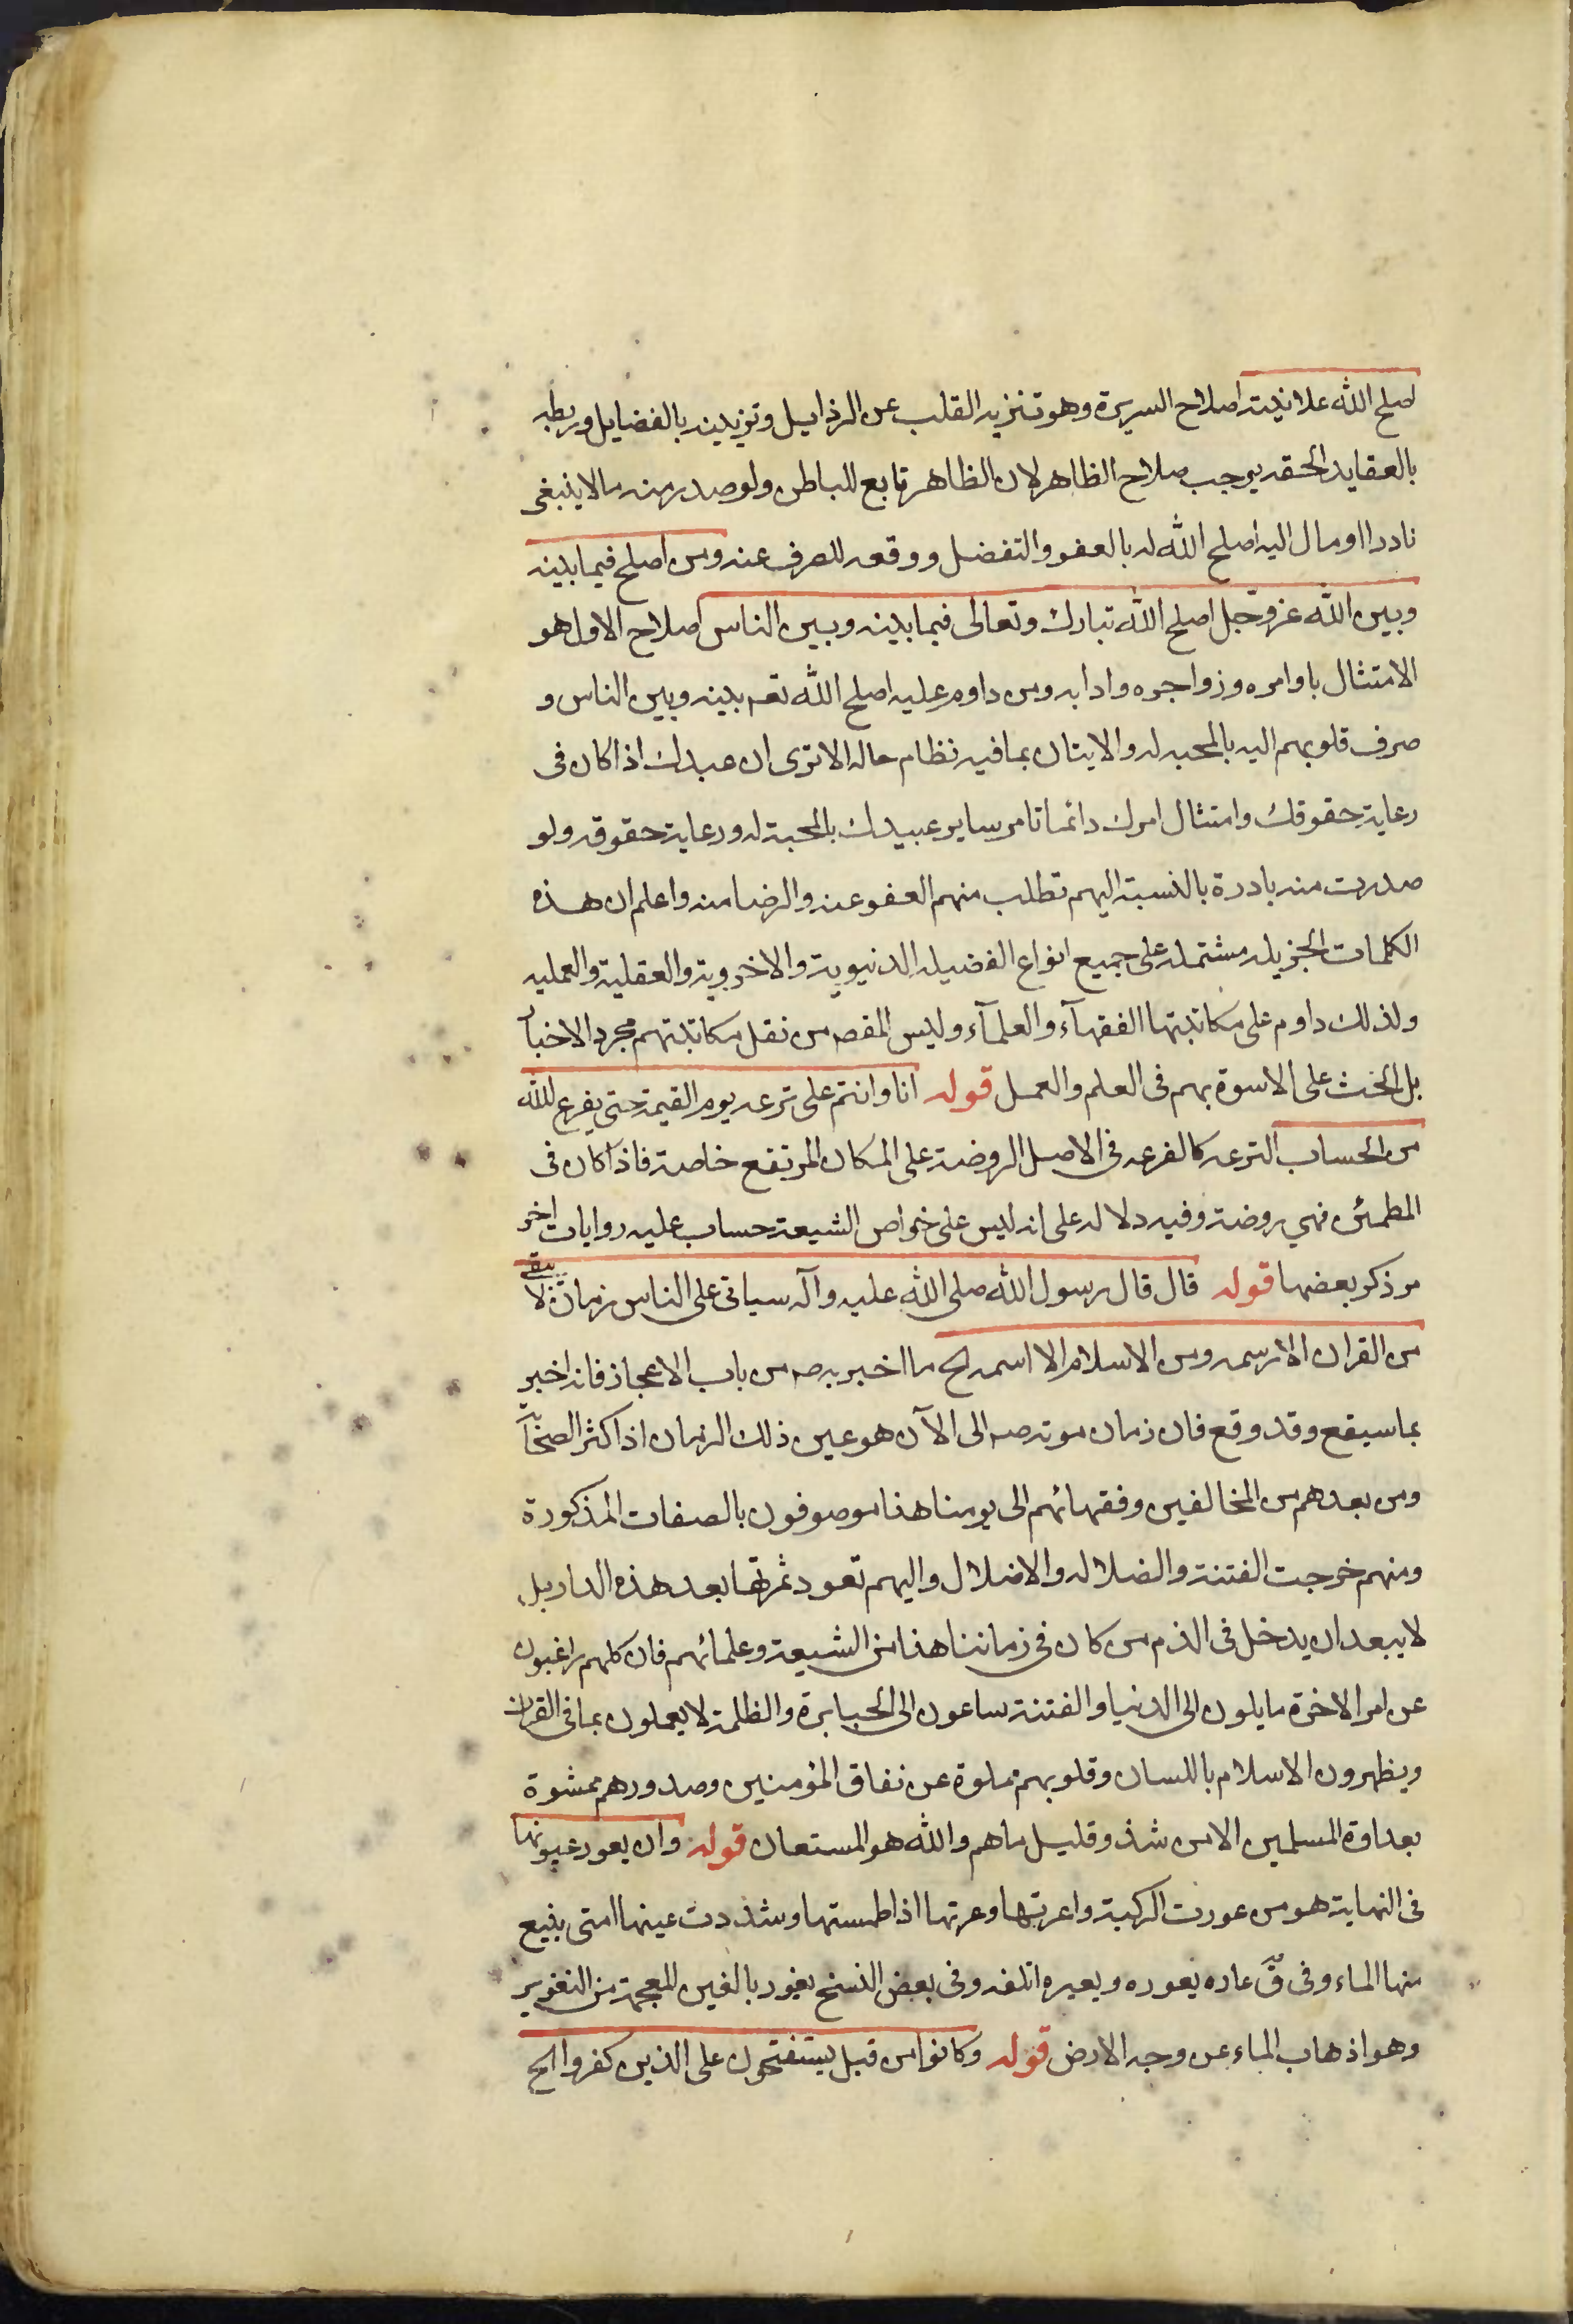 اصلح الله علانيته اصلاح السريرة وهو تنزيه القلب عن الرذايل وتزيينه بالفضايل وربطه
بالعقايد الحقه يوجب صلاح الظاهر لان الظاهر تابع للباطن ولو صدر منه مالا ينبغى
نادرا او مال اليه اصلح الله له بالعفو والتفضل ووقعه للصرف عنه ومن اصلح فيما بينه
وبين الله عز وجل اصلح الله تبارك وتعالى فيما بينه وبين الناس اصلاح الاول هو
الامتثال باوامره وزواجره وادابه ومن داوم عليه اصلح الله تعه بينه وبين الناس و
صرف قلوبهم اليه بالمحبه له والايتان بما فيه نظام حاله الا ترى ان عبدك اذا كان فى
رعاية حقوقك وامتثال امرك دائما تامر ساير عبيدك بالمحبة له ورعاية حقوقه ولو
صدرت منه بادرة بالنسبة اليهم تطلب منهم العفو عنه والرضا منه واعلم ان هذه
الكلمات الجزيله مشتمله على جميع انواع الفضيله الدنيوية والاخروية والعقلية والعمليه
ولذلك داوم على مكاتبتها الفقهآء والعلمآء وليس المقصه من نقل مكاتبتهم مجرد الاخبار
بل الحث على الاسوة بهم فى العلم والعمل قوله انا وانتم على ترعه يوم القيمة حتى يفرغ الله
من الحساب الترعه كالفرعه فى الاصل الروضة على المكان المرتفع خاصة فاذا كان فى
المطمئن فهي روضة وفيه دلاله على انه ليس على خواص الشيعة حساب عليه روايات اخر
مر ذكر بعضها قوله قال قال رسول الله صلى الله عليه وآله سياتى على الناس زمان لا يبقى
من القران الا رسمه ومن الاسلام الا اسمه لخ ما اخبر به صه من باب الاعجاز فانه اخبر
بما سيقع وقد وقع فان زمان موته صه الى الآن هو عين ذلك الزمان اذ اكثر الصحابة
ومن بعدهم من المخالفين وفقهائهم الى يومنا هذا موصوفون بالصفات المذكورة
ومنهم خرجت الفتنة والضلاله والاضلال واليهم تعود ثمرتها بعد هذه الدار بل
لا يبعد ان يدخل فى الذم من كان فى زماننا هذا من الشيعة وعلمائهم فان كلهم راغبون
عن امر الاخرة مايلون الى الدنيا والفتنة ساعون الى الجبابرة والظلمة لا يعملون بما فى القران
ويظهرون الاسلام باللسان وقلوبهم مملوة عن نفاق المؤمنين وصدورهم محشوة
بعداوة المسلمين الا من شذ وقليل ما هم والله هو المستعان قوله وان يعور عيونها
فى النهاية هو من عورت الركية واعرتها وعرتها اذا طمستها وشددت عينها التى ينبع
منها الماء وفى ق عاره يعوره ويعيره اتلفه وفى بعض النسخ يغور بالغين المعجمة من التغوير
وهو اذهاب الماء عن وجه الارض قوله وكانوا من قبل يستفتحون على الذين كفروا الخ